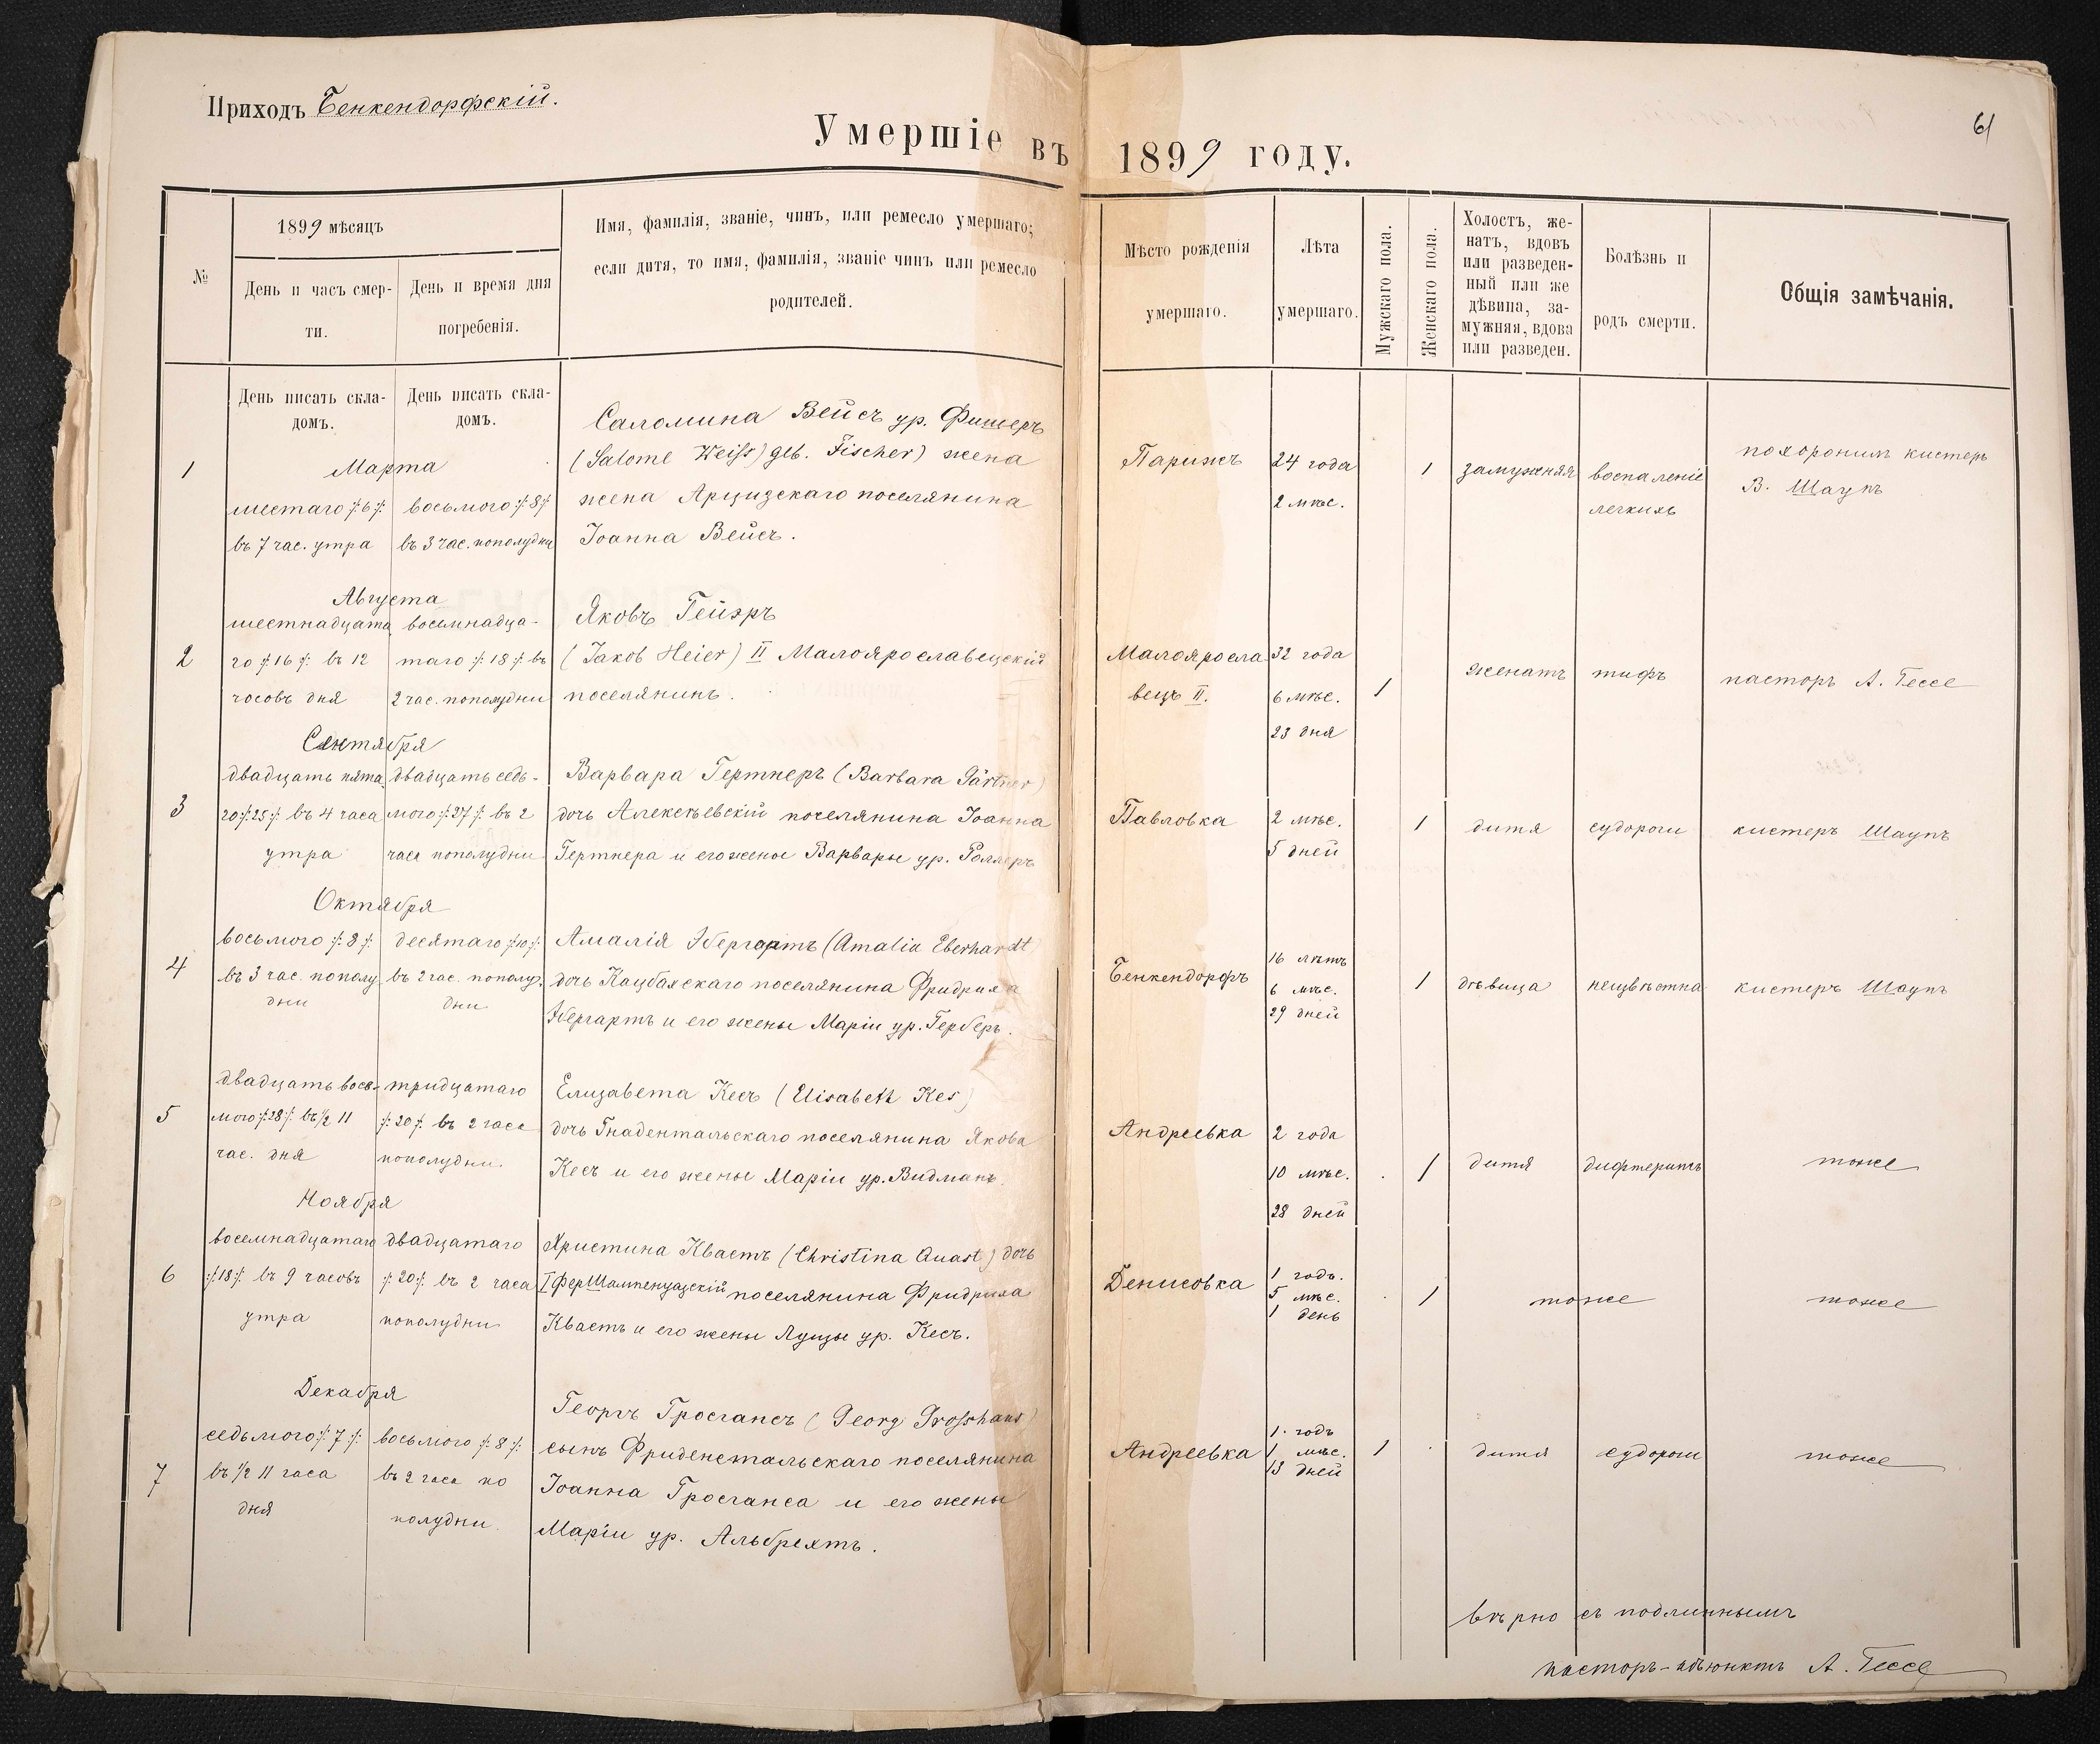 Приходъ Бенкендорфскій.
Умершіе въ 1899 году.
61
№
1899 мѣсяцъ
День и часъ смер-
ти.
День и время дня
погребенія.
Имя, фамилія, званіе, чинъ, или ремесло умершаго;
если дитя, то имя, фамилія, званіе чинъ или ремесло
родителей.
Мѣсто рожденія
умершаго.
Лѣта
умершаго.
Мужскаго пола.
Женскаго пола.
Холостъ, же-
натъ, вдовъ
или разведен-
ный или же
дѣвица, за-
мужняя, вдова
или разведен.
Болѣзнь и
родъ смерти.
Общія замѣчанія.
День писать скла-
домъ.
День писать скла-
домъ.
1
Марта
шестаго /:6:/
въ 7 час. утра
восьмого /:8:/
въ 3 час. пополудни
Саломина Вейсъ ур. Фишеръ
(Salome Weiss) geb. Fischer) жена
жена Арцизскаго поселянина
Іоанна Вейсъ.
Парижъ
24 года
2 мѣс.
1
замужняя
воспаленіе
легкихъ
похоронилъ кистеръ
В. Шаупъ
2
Августа
шестнадцата
го /:16:/ въ 12
часовъ дня
восемнадца-
таго /:18:/ въ
2 час. пополудни
Яковъ Гейэръ
(Jakob Heier) II Малоярославецскій
поселянинъ.
Малоярославецъ II.
32 года
6 мѣс.
23 дня
1
женатъ
тифъ
пасторъ А. Гессе
3
Сентября
двадцать пята
го /:25:/ въ 4 часа
утра
двадцать седь-
мого /:27:/ въ 2
часа пополудни
Варвара Гертнеръ (Barbara Gärtner)
дочь Алексѣевскій поселянина Іоанна
Гертнера и его жены Варвары ур. Роллеръ
Павловка
2 мѣс.
5 дней
1
дитя
судороги
кистеръ Шаупъ
4
Октября
восьмого /:8:/
въ 3 час. пополу
дни
десятаго /:10:/
въ 2 час. пополу.
дни
Амалія Эбергартъ (Amalia Eberhardt
дочь Кацбахскаго поселянина Фридриха
Эбергартъ и его жены Маріи ур. Герберъ.
Бенкендорфъ
16 лѣтъ
6 мѣс.
29 дней
1
дѣвица
неизвѣстна
кистеръ Шаупъ
5
двадцать вось-
мого /:28:/ въ 1/2 11
час. дня
тридцатаго
/:20:/ въ 2 часа
пополудни
Елизавета Кесъ (Elisabeth Kes)
дочь Гнадентальскаго поселянина Якова
Кесъ и его жены Маріи ур. Видманъ.
Андреевка
2 года
10 мѣс.
28 дней
1
дитя
дифтеритъ
тоже
6
Ноября
восемнадцатаго
/:18:/ въ 9 часовъ
утра
двадцатаго
/:20:/ въ 2 часа
пополудни
Христина Квастъ (Christina Quast) дочь
I ФерШампенуазскій поселянина Фридриха
Квастъ и его жены Луизы ур. Кесъ.
Денисовка
1 годъ.
5 мѣс.
1 день
1
тоже
тоже
7
Декабря
седьмого /:7:/
въ 1/2 11 часа
дня
восьмого /:8:/
въ 2 часа по
полудни.
Георгъ Гросгансъ (Georg Grosshans)
сынъ Фриденстальскаго поселянина
Іоанна Гросганса и его жены
Маріи ур. Альбрехтъ.
Андреевка
1 годъ
1 мѣс.
13 дней
1
дитя
судороги
тоже
вѣрно съ подлиннымъ
пасторъ-адъюнктъ А. Гессе